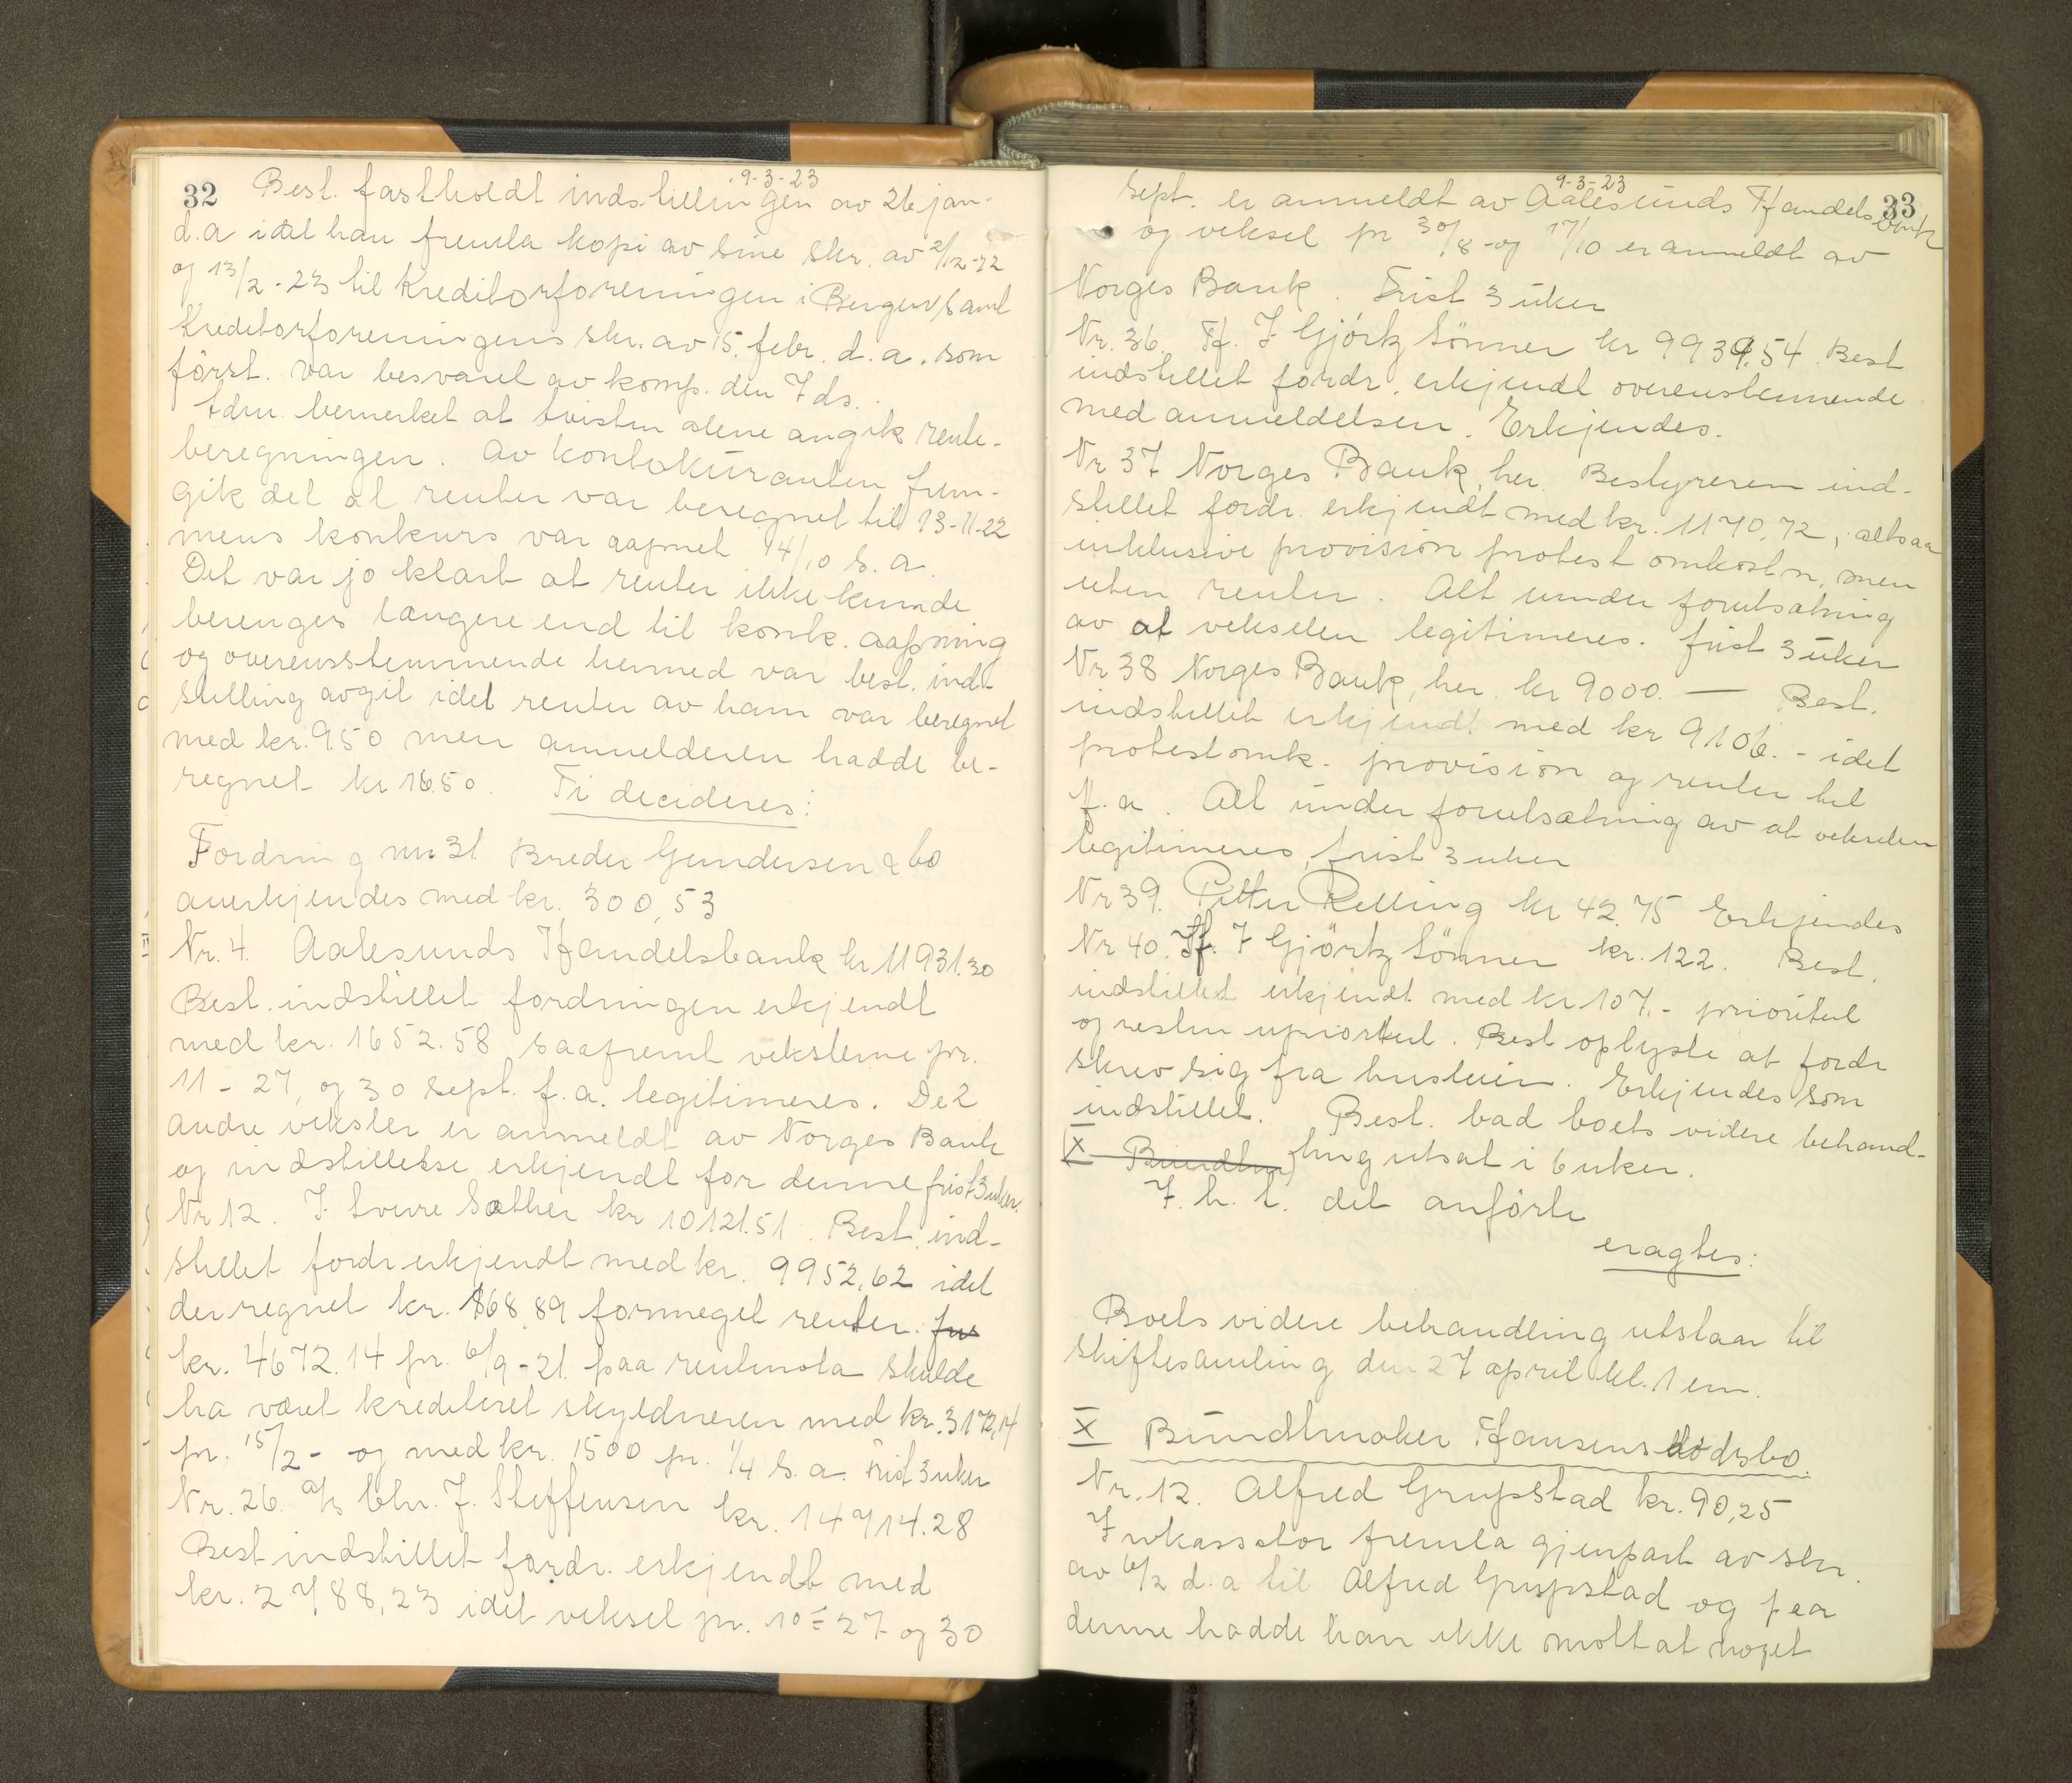 32
9-3-23
Best. fastholdt indstillingen av 26 jan.
d.a idet han fremla kopi av sine skr. av 2/12-22
og 13/2-23 til Kreditorforeningen i Bergen, samt
Kreditorforeningens skr. av 15. febr. d.a. som
först. var besvaret av komp. den 7 ds.
bemerket at tvisten alene angik rente-
beregningen. Av kontokuranten frem-
gik det at renter var beregnet till 13-11-22
mens konkurs var aapnet 14/10 s.a.
Det var jo klart at renter ikke kunde
berenges længere end til konk. aapning
og overensstemmende hermed var best. ind-
stilling avgit idet renter av ham var beregnet
med kr. 9.50 men anmelderen hadde be-
regnet kr 16.50. Ti decideres:
Fordring nr. 31 Breder Gundersen & Co
anerkjendes med kr. 300,53
Nr. 4. Aalesunds Handelsbank kr 11931.30
Best. indstillet fordringen erkjendt
med kr. 1652.58 saafremt vekslerne pr.
11-27, og 30 sept. f.a. legitimeres. De 2
andre veksler er anmeldt av Norges Bank
og indstillelse erkjendt for denne frist 3 uker.
Nr 12. J. Sæther kr 10121.51. Best. ind-
stillet fordr erkjendt med kr. 9952,62 idet
der regnet kr. 168,89 formeget renter. fris
kr. 4672.14 pr. 6/9-21. paa rentenota skulde
ha været krediteret skyldneren med kr. 3172,14
pr. 15/2- og med kr. 1500 pr. 1/4 s.a. Frist 3 uker
Nr. 26. a/s Chr. J. Steffensen kr. 14714.28
Best indstillet fordr. erkjendt med
kr. 2788,23 idet veksel pr. 10 - 27- og 30
33
9-3-23
sept. er anmeldt av Aalesunds Handelsbank
og veksel pr 30/8 -og 17/10 er anmeldt av
Norges Bank. Frist 3 uker
Nr. 36. H. J Gjörtz Sönner kr 9939.54 Best
indstillet fordr. erkjendt overenstemmende
med anmeldelsen. Erkjendes.
Nr 37 Norges Bank, her. Bestyreren ind-
stillet fordr. erkjendt med kr. 1170,72, altsaa
inklusive provision protest omkostn. men
uten renter. Alt under forutsætning
av at vekselen legitimeres. frist 3 uker
Nr 38 Norges Bank, her. kr 9000. — Best.
indstillet erkjendt med kr 9106.- idet
protestomk. provision og renter til
f.a. Alt under forutsætning av at vekselen
legitimeres, frist 3 uker
Nr 39. Petter Relling kr 42,75 Erkjendes
Nr 40. H. J Gjörtz Sönner kr. 122. Best.
indstillet erkjendt med kr 107.- prioritert
og resten upriortert. Best oplyste at fordr
skrev sig fra husleien. Erkjendes som
indstillet. Best. bad boets videre behand-
X Bundtm) ling utsat i 6 uker.
I h. t. det anförte
eragtes:
Boets videre behandling utstaar til
skiftesamling den 27 april kl. 1 em.
X Bundtmaker Hansens dödsbo.
Nr. 12. Alfred Grupstad kr. 90,25
Inkassator fremla gjenpart av skr.
av 6/2 d.a til Alfred Grupstad og paa
denne hadde han ikke mottat noget